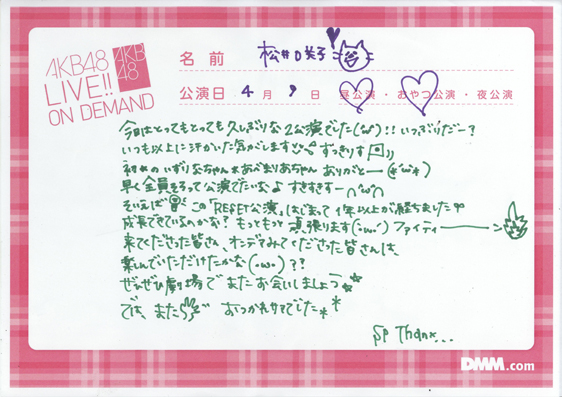 AKB48
LIVE!!
ON DEMAND
AKB
48
名前 松井咲子
公演日 4月9日 昼公演・おやつ公演・夜公演
今日はとってもとっても久しぶりな2公演でした(´ω`)!! いつぶりだー?
いつも以上に汗かいた気がします すっきりす
初めのいずりなちゃん*あべまりあちゃん ありがとー
早く全員そろって公演でたいなぁ すきすきすー
そいえば この「RESET公演」はじまって1年以上が経ちました
成長できているのかな? もっともっと頑張ります(・ω・`) ファイティー
来てくださった皆さん、オンデマみてくださった皆さんは、
楽しんでいただけたかな(・ω・)??
ぜひぜひ劇場でまたお会いしましょう
では、また おつかれサマでした**
Sp Thanx...
DMM.com